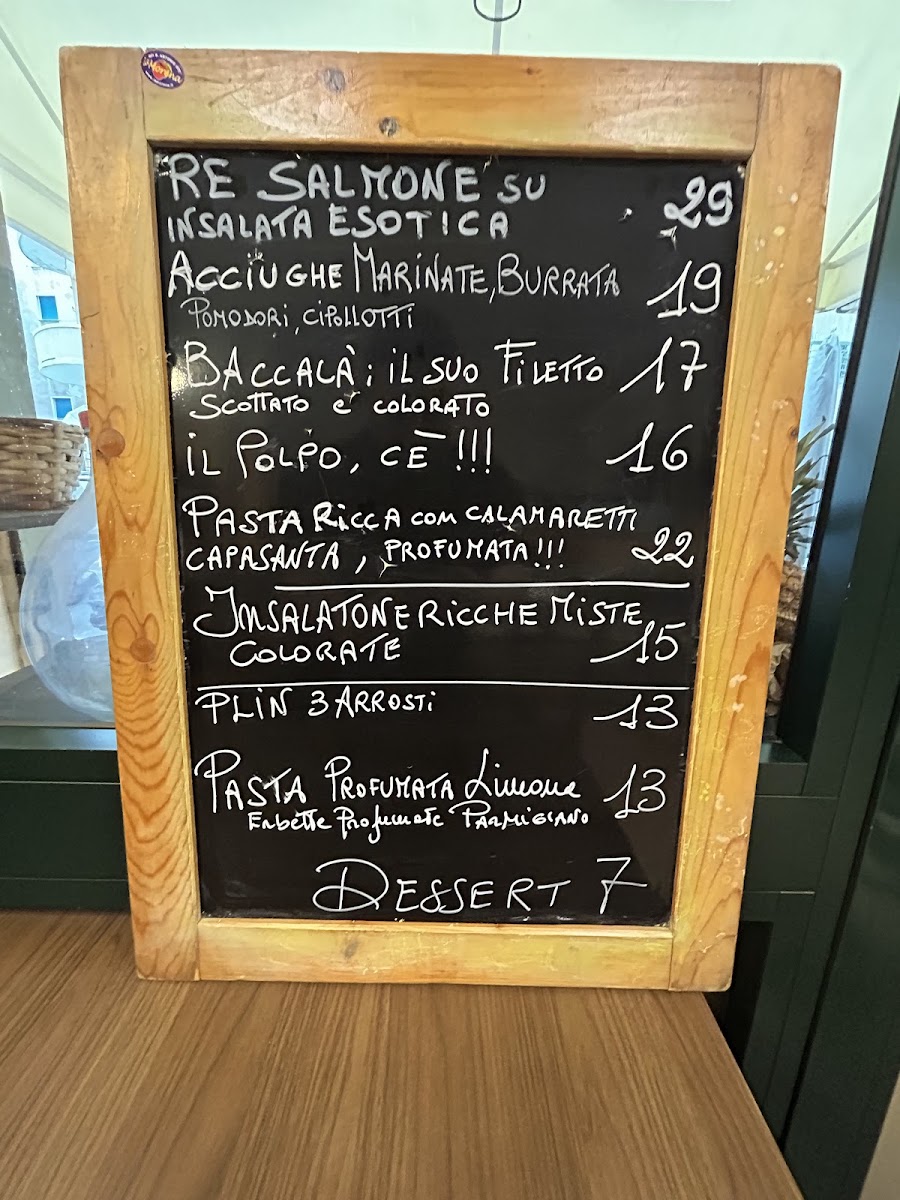 RE SALMONE SU
INSALATA ESOTICA 29
ACCIUGHE MARINATE, BURRATA 19
POMODORI, CIPOLLOTTI
BACCALÀ; IL SUO FILETTO 17
SCOTTATO E COLORATO
IL POLPO, CÈ !!! 16
PASTA RICCA COM CALAMARETTI
CAPASANTA, PROFUMATA!!! 22
INSALATONE RICCHE MISTE
COLORATE 15
PLIN 3 ARROSTI 13
PASTA PROFUMATA Limone 13
Erbette Profumate PARMIGIANO
DESSERT 7